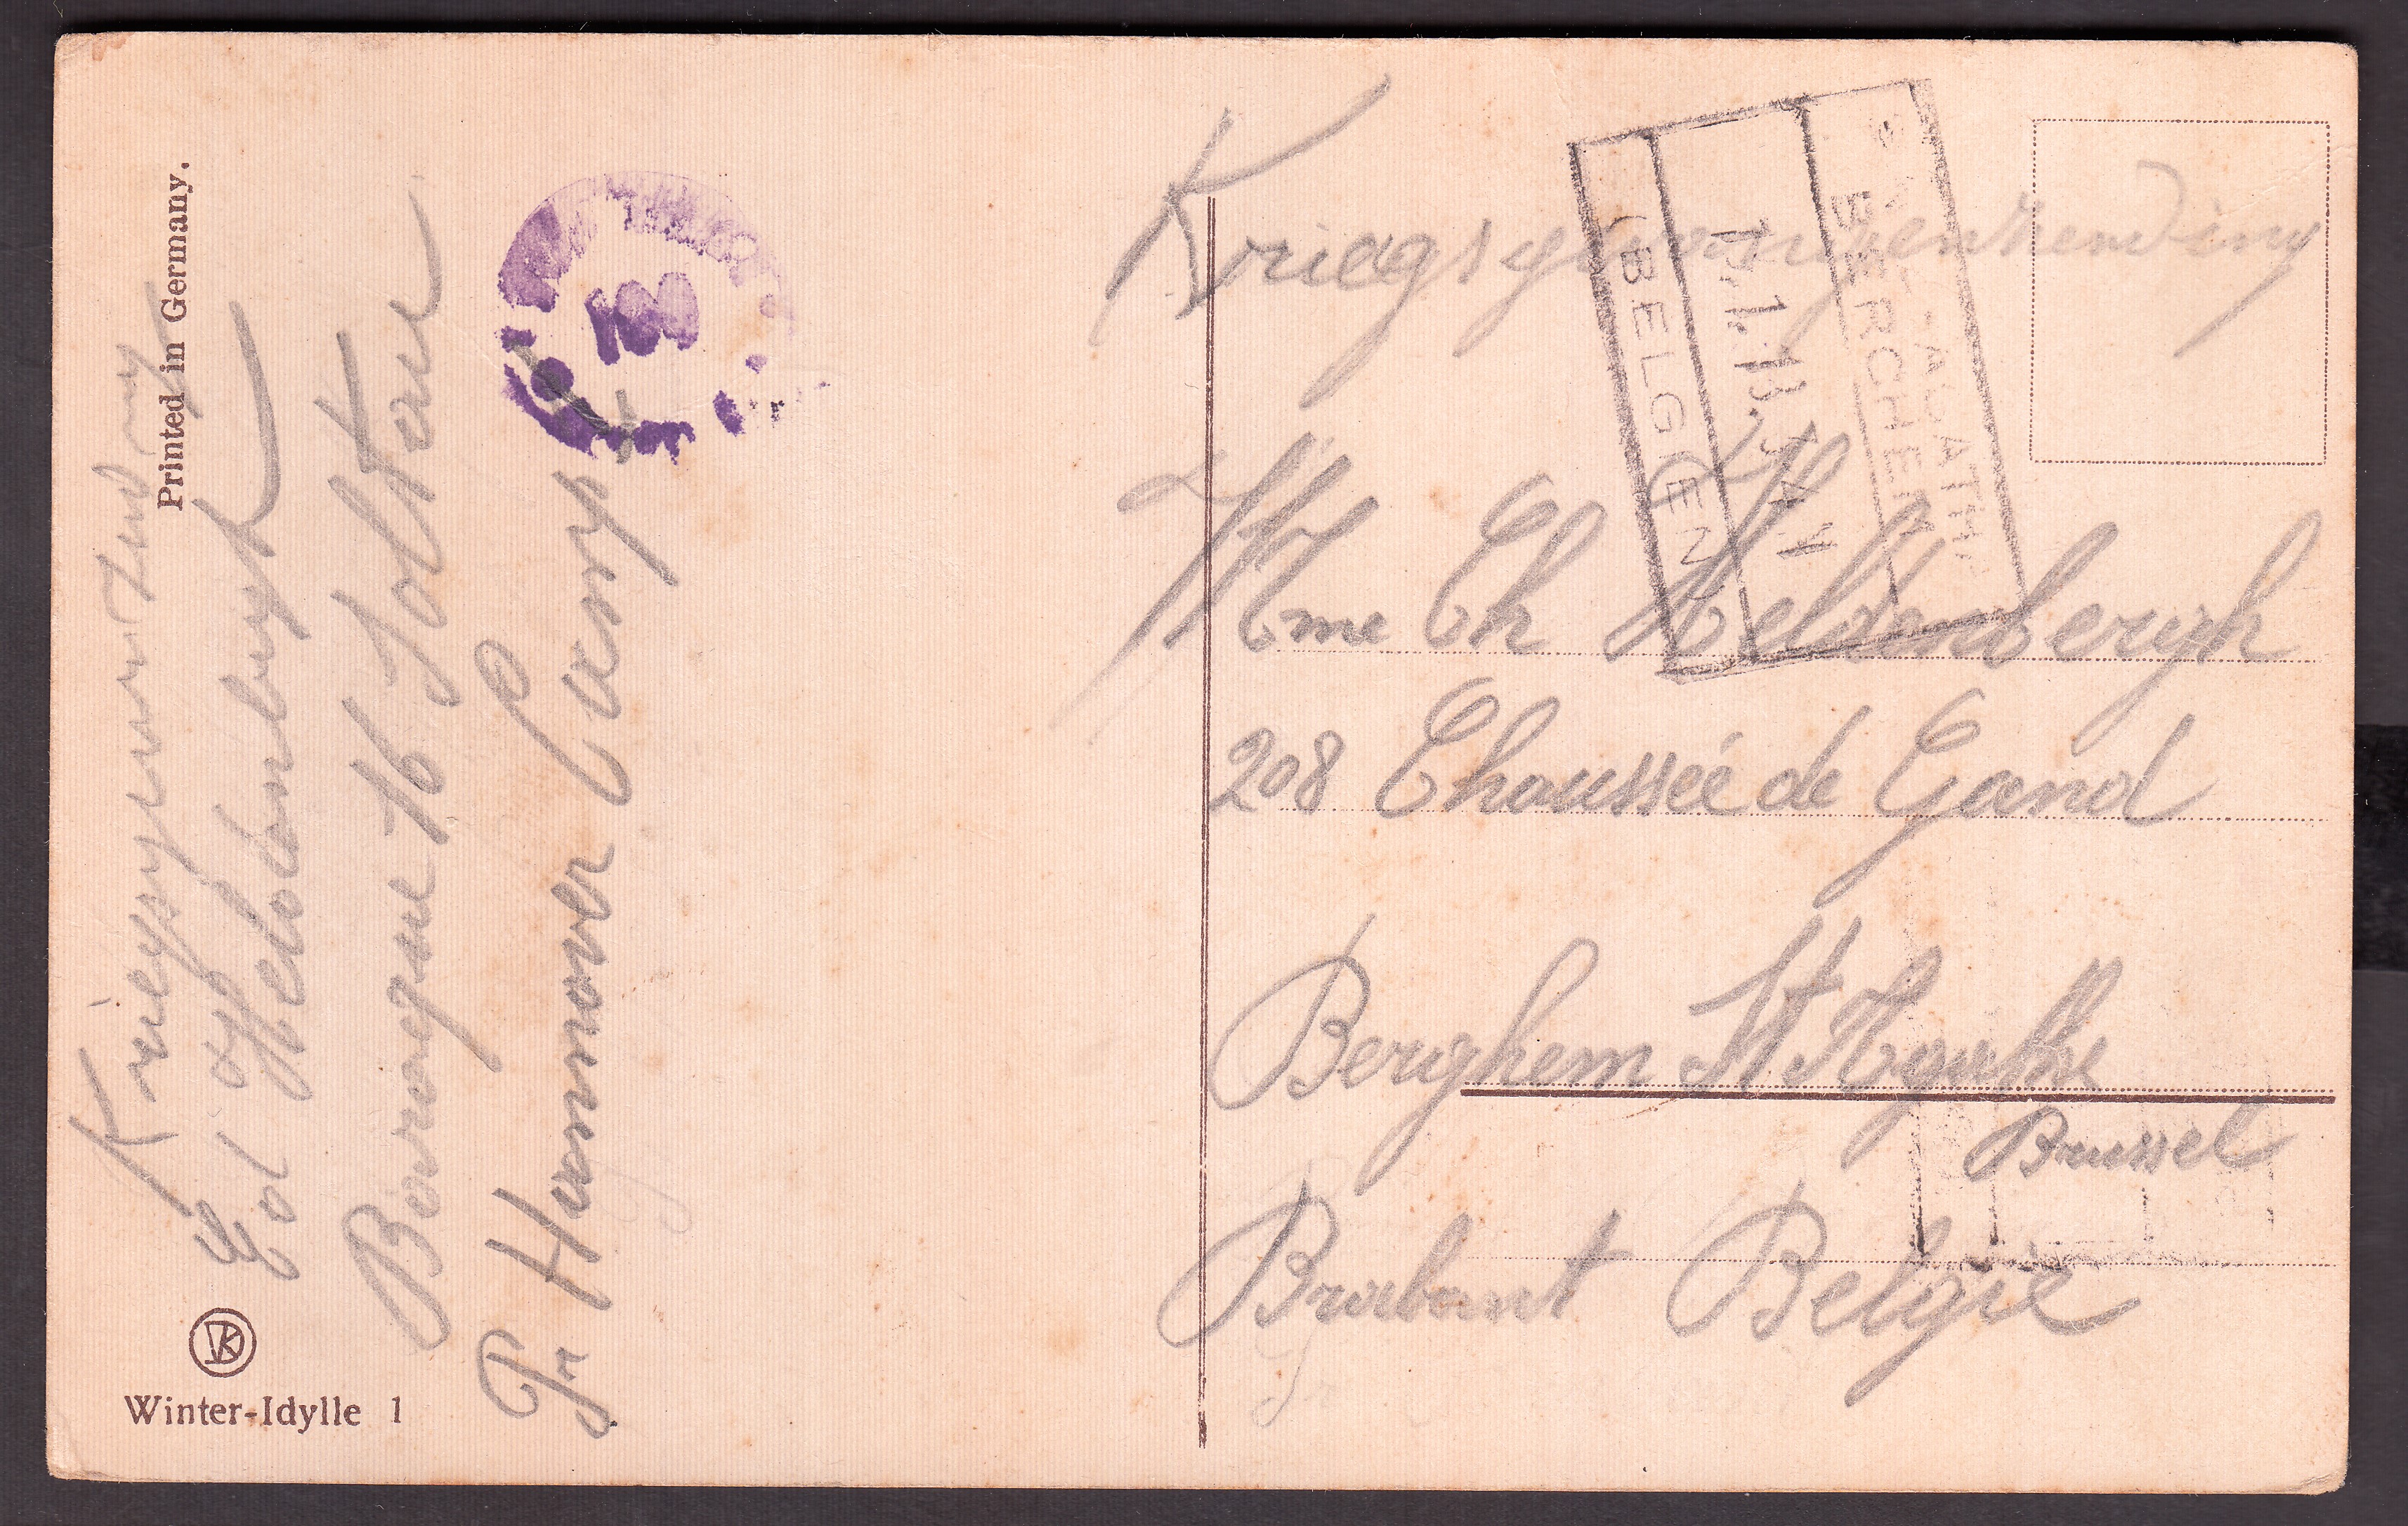 Printed in Germany.
Ed Heldenbergh
Baraque 76 Soltau
Pr Hannover Camp
Winter-Idylle 1
Kriegsgefangensending
BERCHEM
(BELGIEN
Mme Ch Heldenbergh
208 Chaussée de Gand
Berghem St Agathe
Brussel
Brabant Belgie